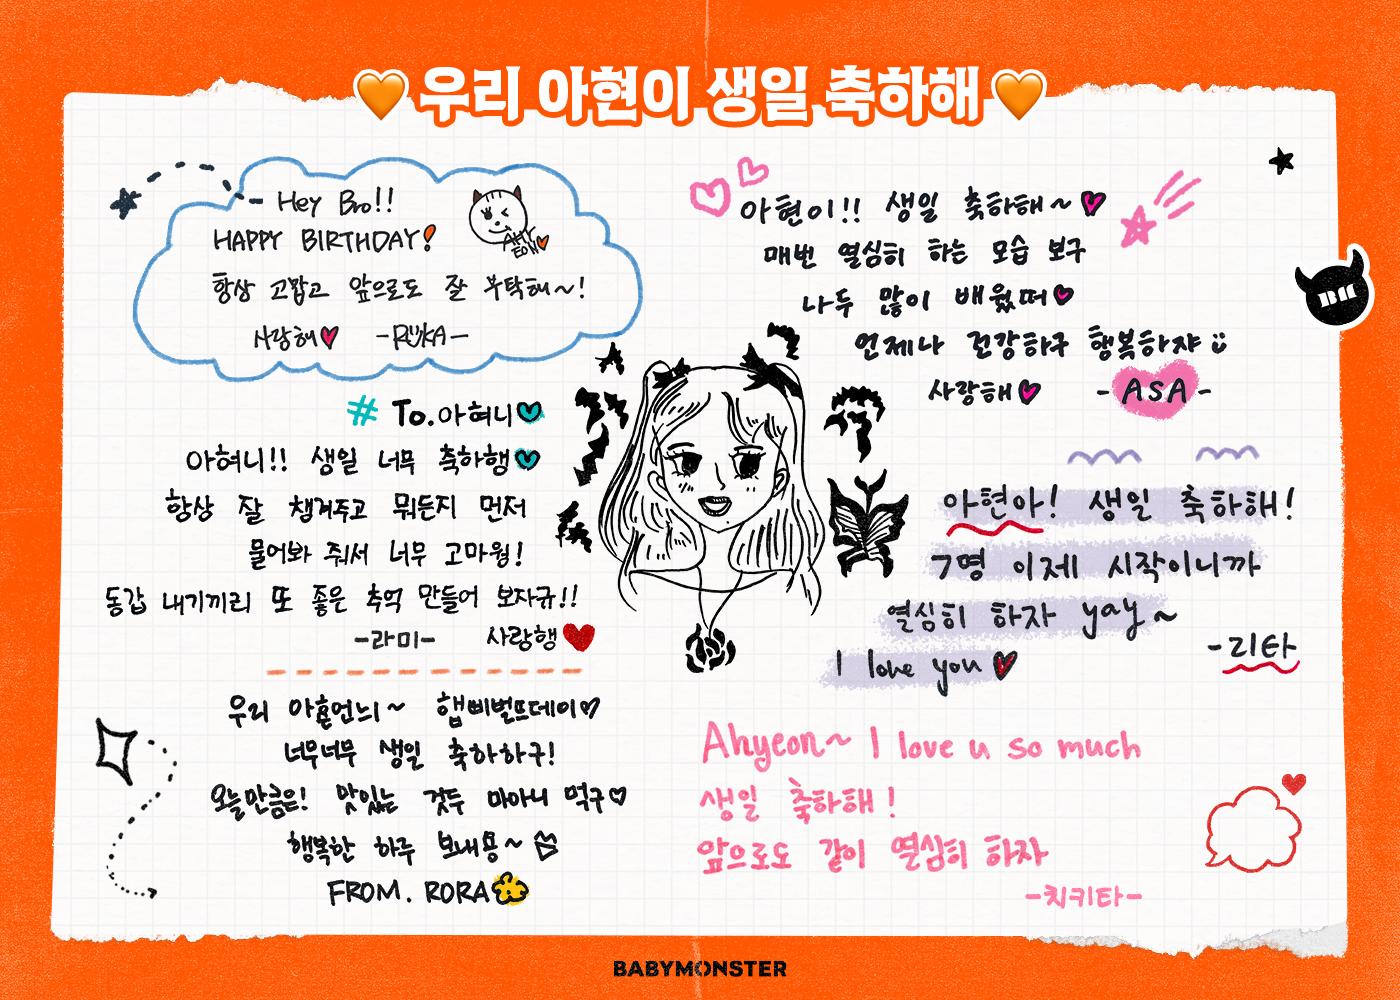 우리 아현이 생일 축하해
Hey Bro!!
HAPPY BIRTHDAY!
AHYEON
항상 고맙고 앞으로도 잘 부탁해~!
사랑해 -RUKA-
# To.아혀니
아혀니!! 생일 너무 축하행
항상 잘 챙겨주고 뭐든지 먼저
물어봐 줘서 너무 고마웡!
동갑 내기끼리 또 좋은 추억 만들어 보자규!!
-라미- 사랑행
우리 아횬언늬~ 햅삐벌뜨데이
너무너무 생일 축하하구!
오늘만큼은! 맛있는 것두 마아니 먹구
행복한 하루 보내용~
FROM. RORA
아현이!! 생일 축하해~
매번 열심히 하는 모습 보구
나두 많이 배웠떠
언제나 건강하구 행복하쟈
사랑해 -ASA-
아현아! 생일 축하해!
7명 이제 시작이니까
열심히 하자 yay~
I love you
-리타-
Ahyeon~ I love u so much
생일 축하해!
앞으로도 같이 열심히 하자
-치키타-
BABYMONSTER